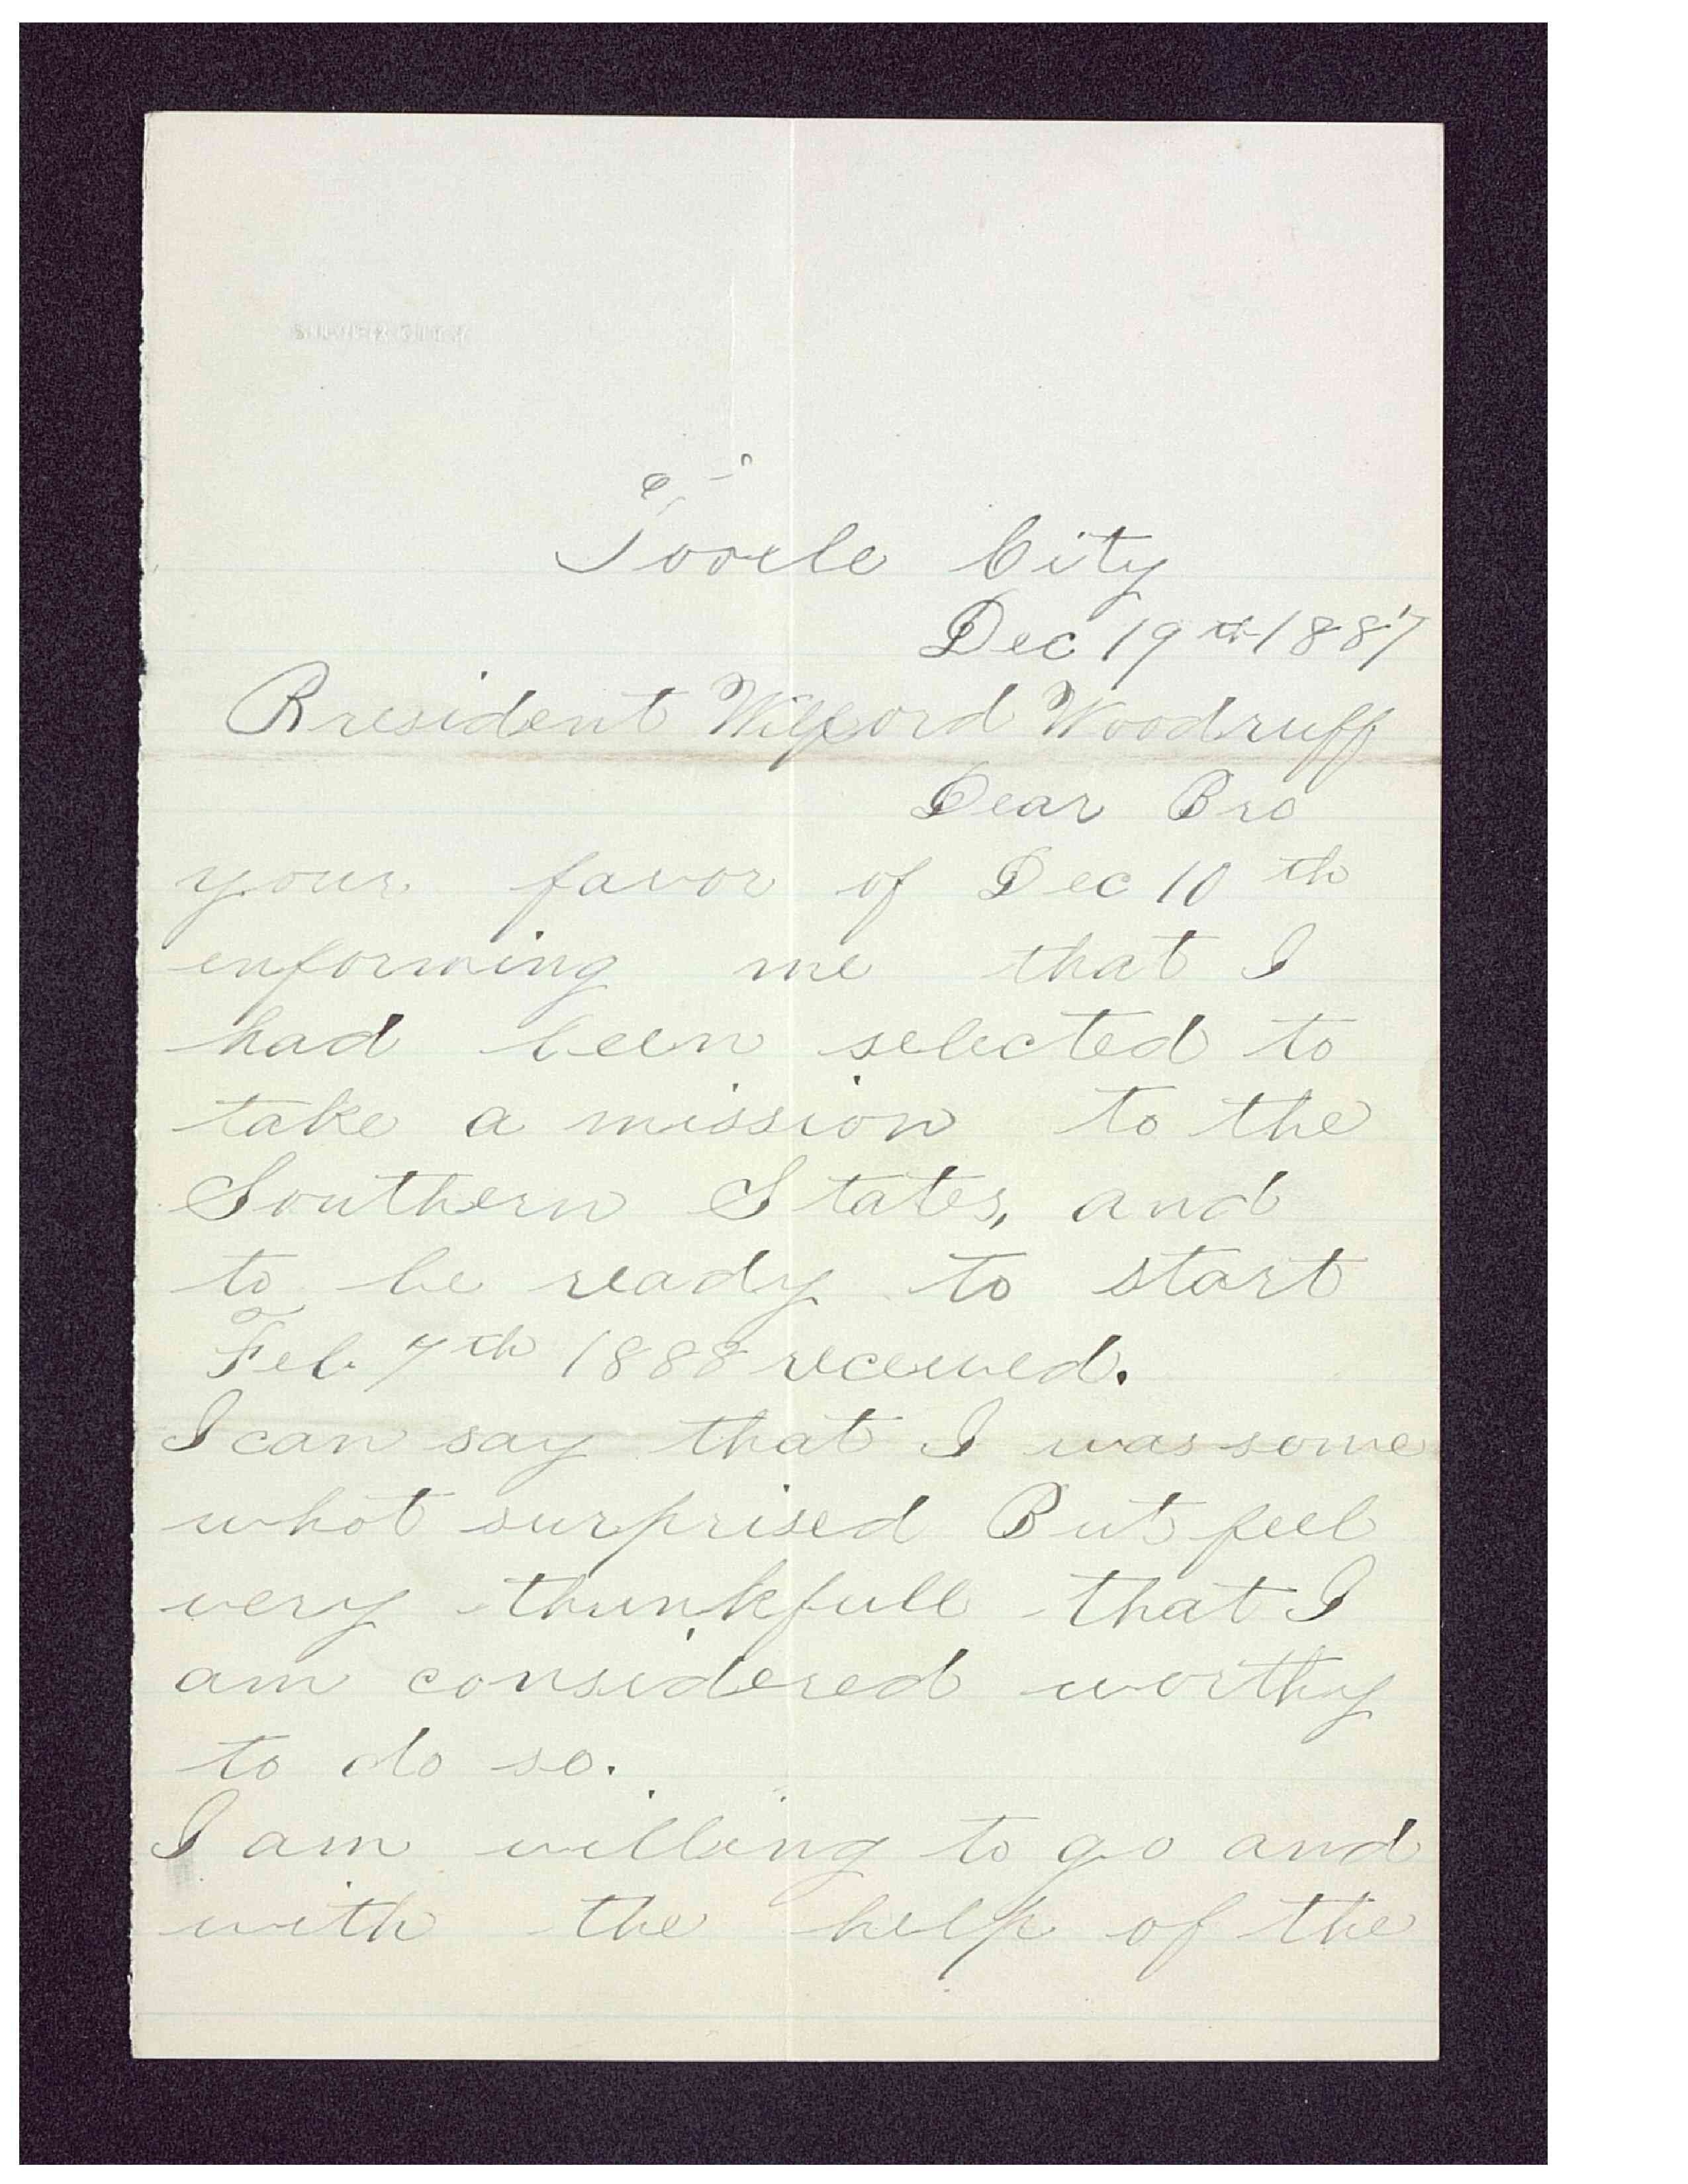 Tooele City
Dec 19th 1887
President Wilford Woodruff
Dear Bro
your favor of Dec 10th
enforming me that I
had been selected to
take a mission to the
Southern States, and
to be ready to start
Feb 7th 1888 received.
I can say that I was some
what surprised But feel
very thankfull that I
am considered worthy
to do so.
I am willing to go and
with the help of the